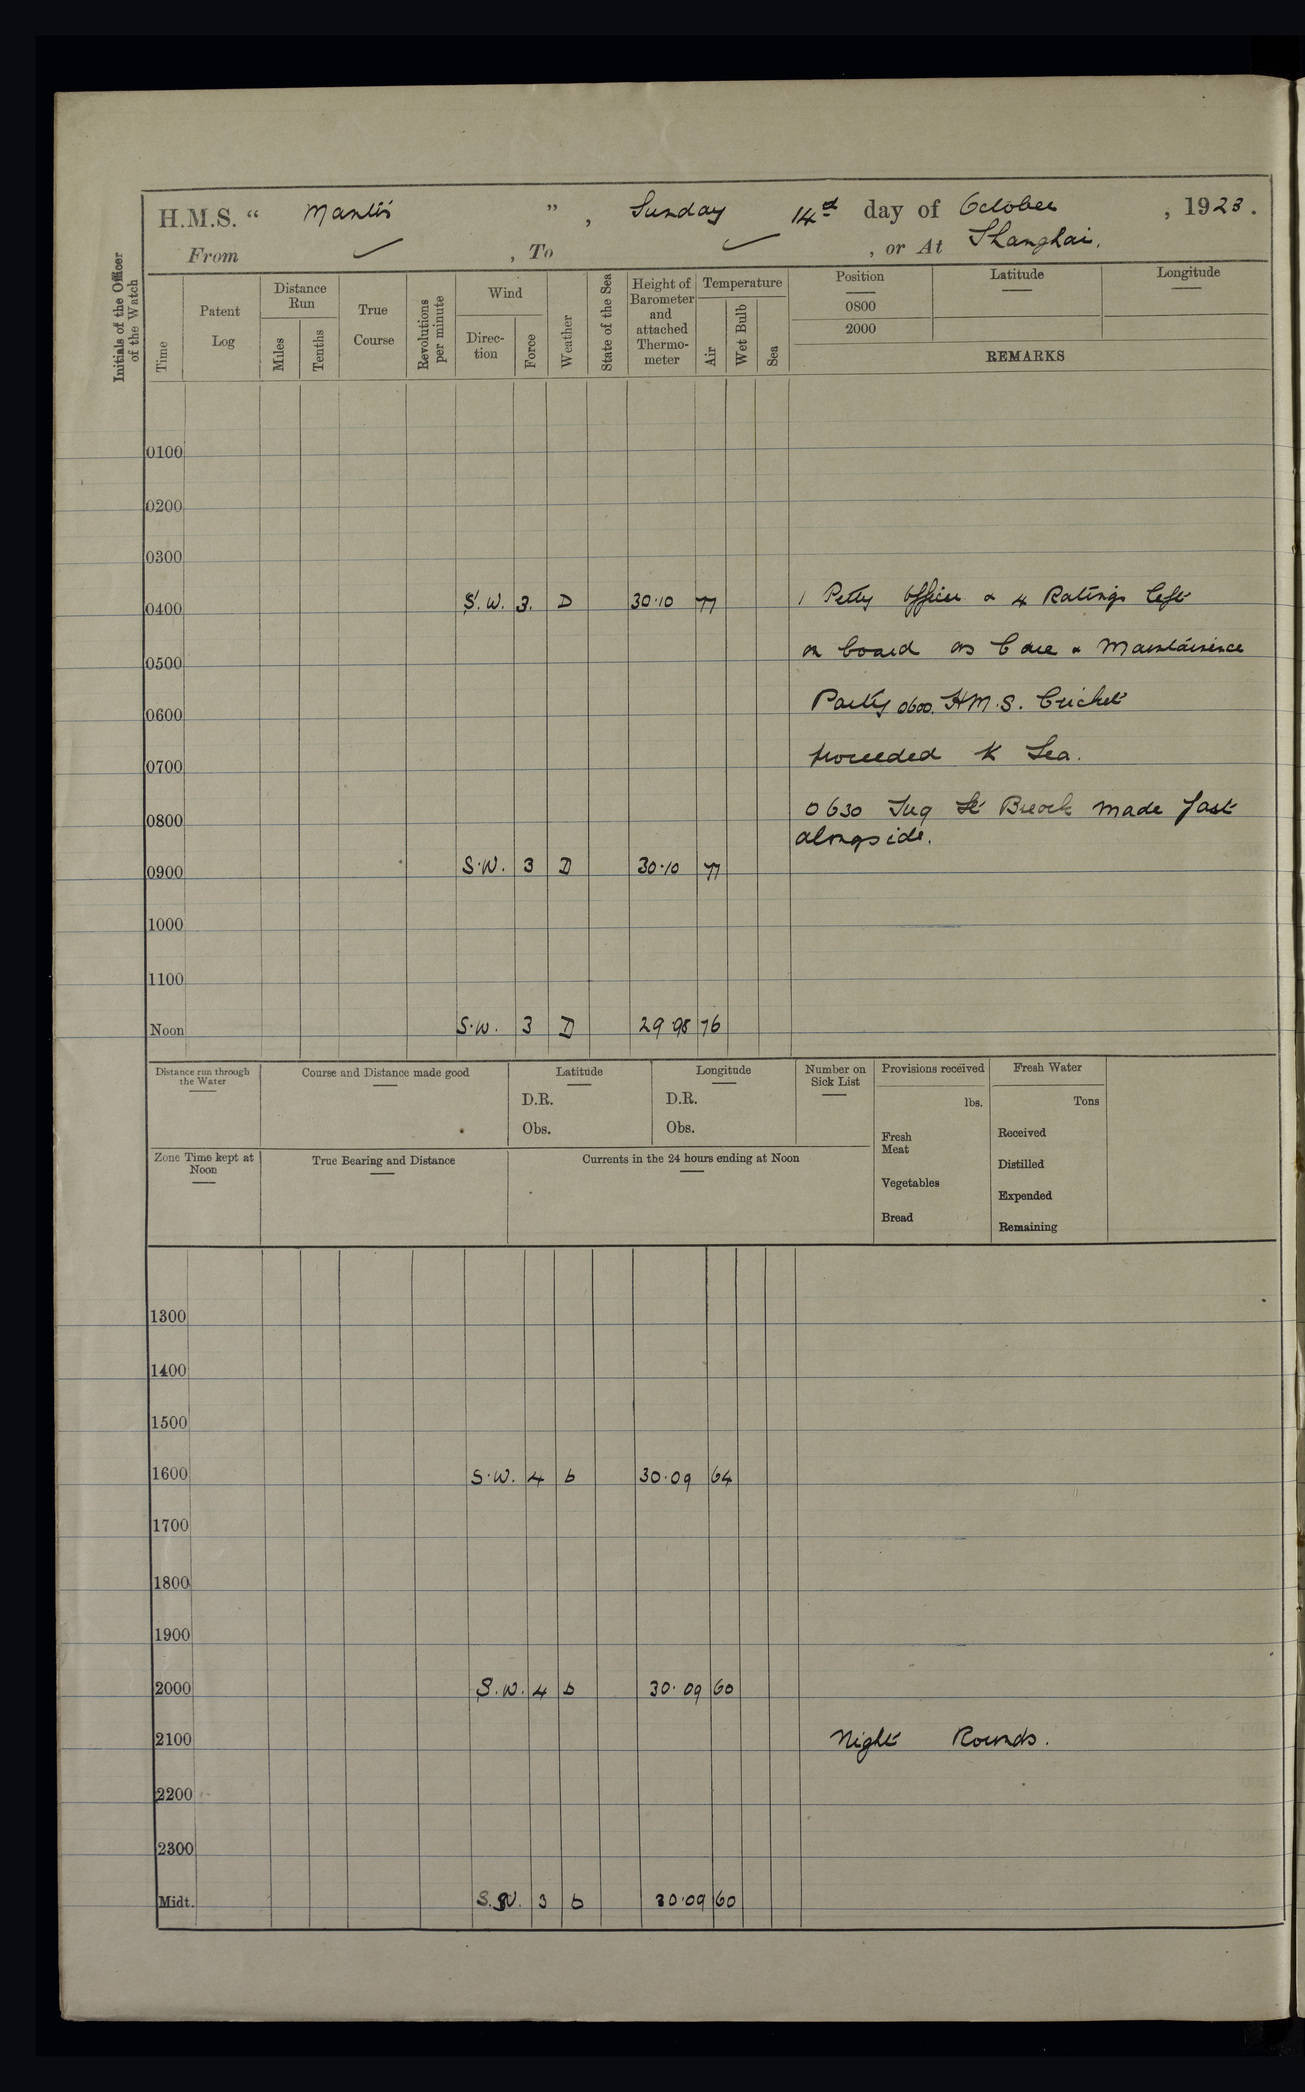 H.M.S. “ Mantis ” , Sunday 14th day of October , 1923.
From ✓ , To ✓ , or At Shanghai.
Initials of the Officer of the Watch
Time
Patent Log
Distance Run
Miles
Tenths
True Course
Revolutions per minute
Wind
Direc-tion
Force
Weather
State of the Sea
Height of Barometer and attached Thermo-meter
Temperature
Air
Wet Bulb
Sea
Position
Latitude
Longitude
0800
2000
REMARKS
0100
0200
0300
0400 S.W. 3. D 30.10 77 1 Petty Officer & 4 Ratings left
0500 on board as Care & Maintainence
0600 Party 0600. H.M.S. Cricket
0700 proceeded to Sea.
0800 0630 Tug St Breock made fast
alongside.
0900 S.W. 3 D 30.10 77
1000
1100
Noon S.W. 3 D 29.98 76
Distance run through the Water
Course and Distance made good
Latitude
D.R.
Obs.
Longitude
D.R.
Obs.
Number on Sick List
Provisions received
lbs.
Fresh Meat
Vegetables
Bread
Fresh Water
Tons
Received
Distilled
Expended
Remaining
Zone Time kept at Noon
True Bearing and Distance
Currents in the 24 hours ending at Noon
1300
1400
1500
1600 S.W. 4 b 30.09 64
1700
1800
1900
2000 S.W. 4 b 30.09 60
2100 Night Rounds.
2200
2300
Midt. 3 b 30.09 60